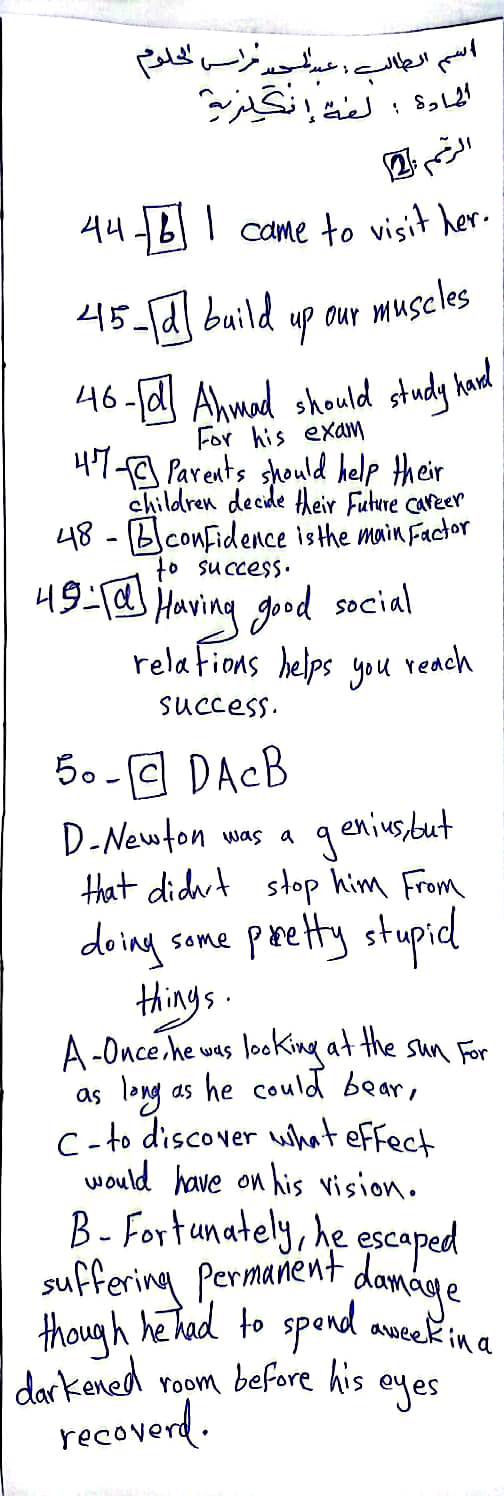 اسم الطالب : عبدالمجيد فراس الحلوم
المادة : لغة إنكليزية
الرقم : 2
44-b I came to visit her.
45-d build up our muscles
46-d Ahmad should study hard
For his exam
47-c Parents should help their
children decide their Future career
48 - b confidence is the main Factor
to success.
49-d Having good social
relations helps you reach
success.
50-c DAcB
D-Newton was a genius, but
that didn't stop him From
doing some pretty stupid
things.
A-Once, he was looking at the sun For
as long as he could bear,
C-to discover what eFFect
would have on his vision.
B-Fortunately, he escaped
suffering permanent damage
though he had to spend a week in a
darkened room before his eyes
recoverd.